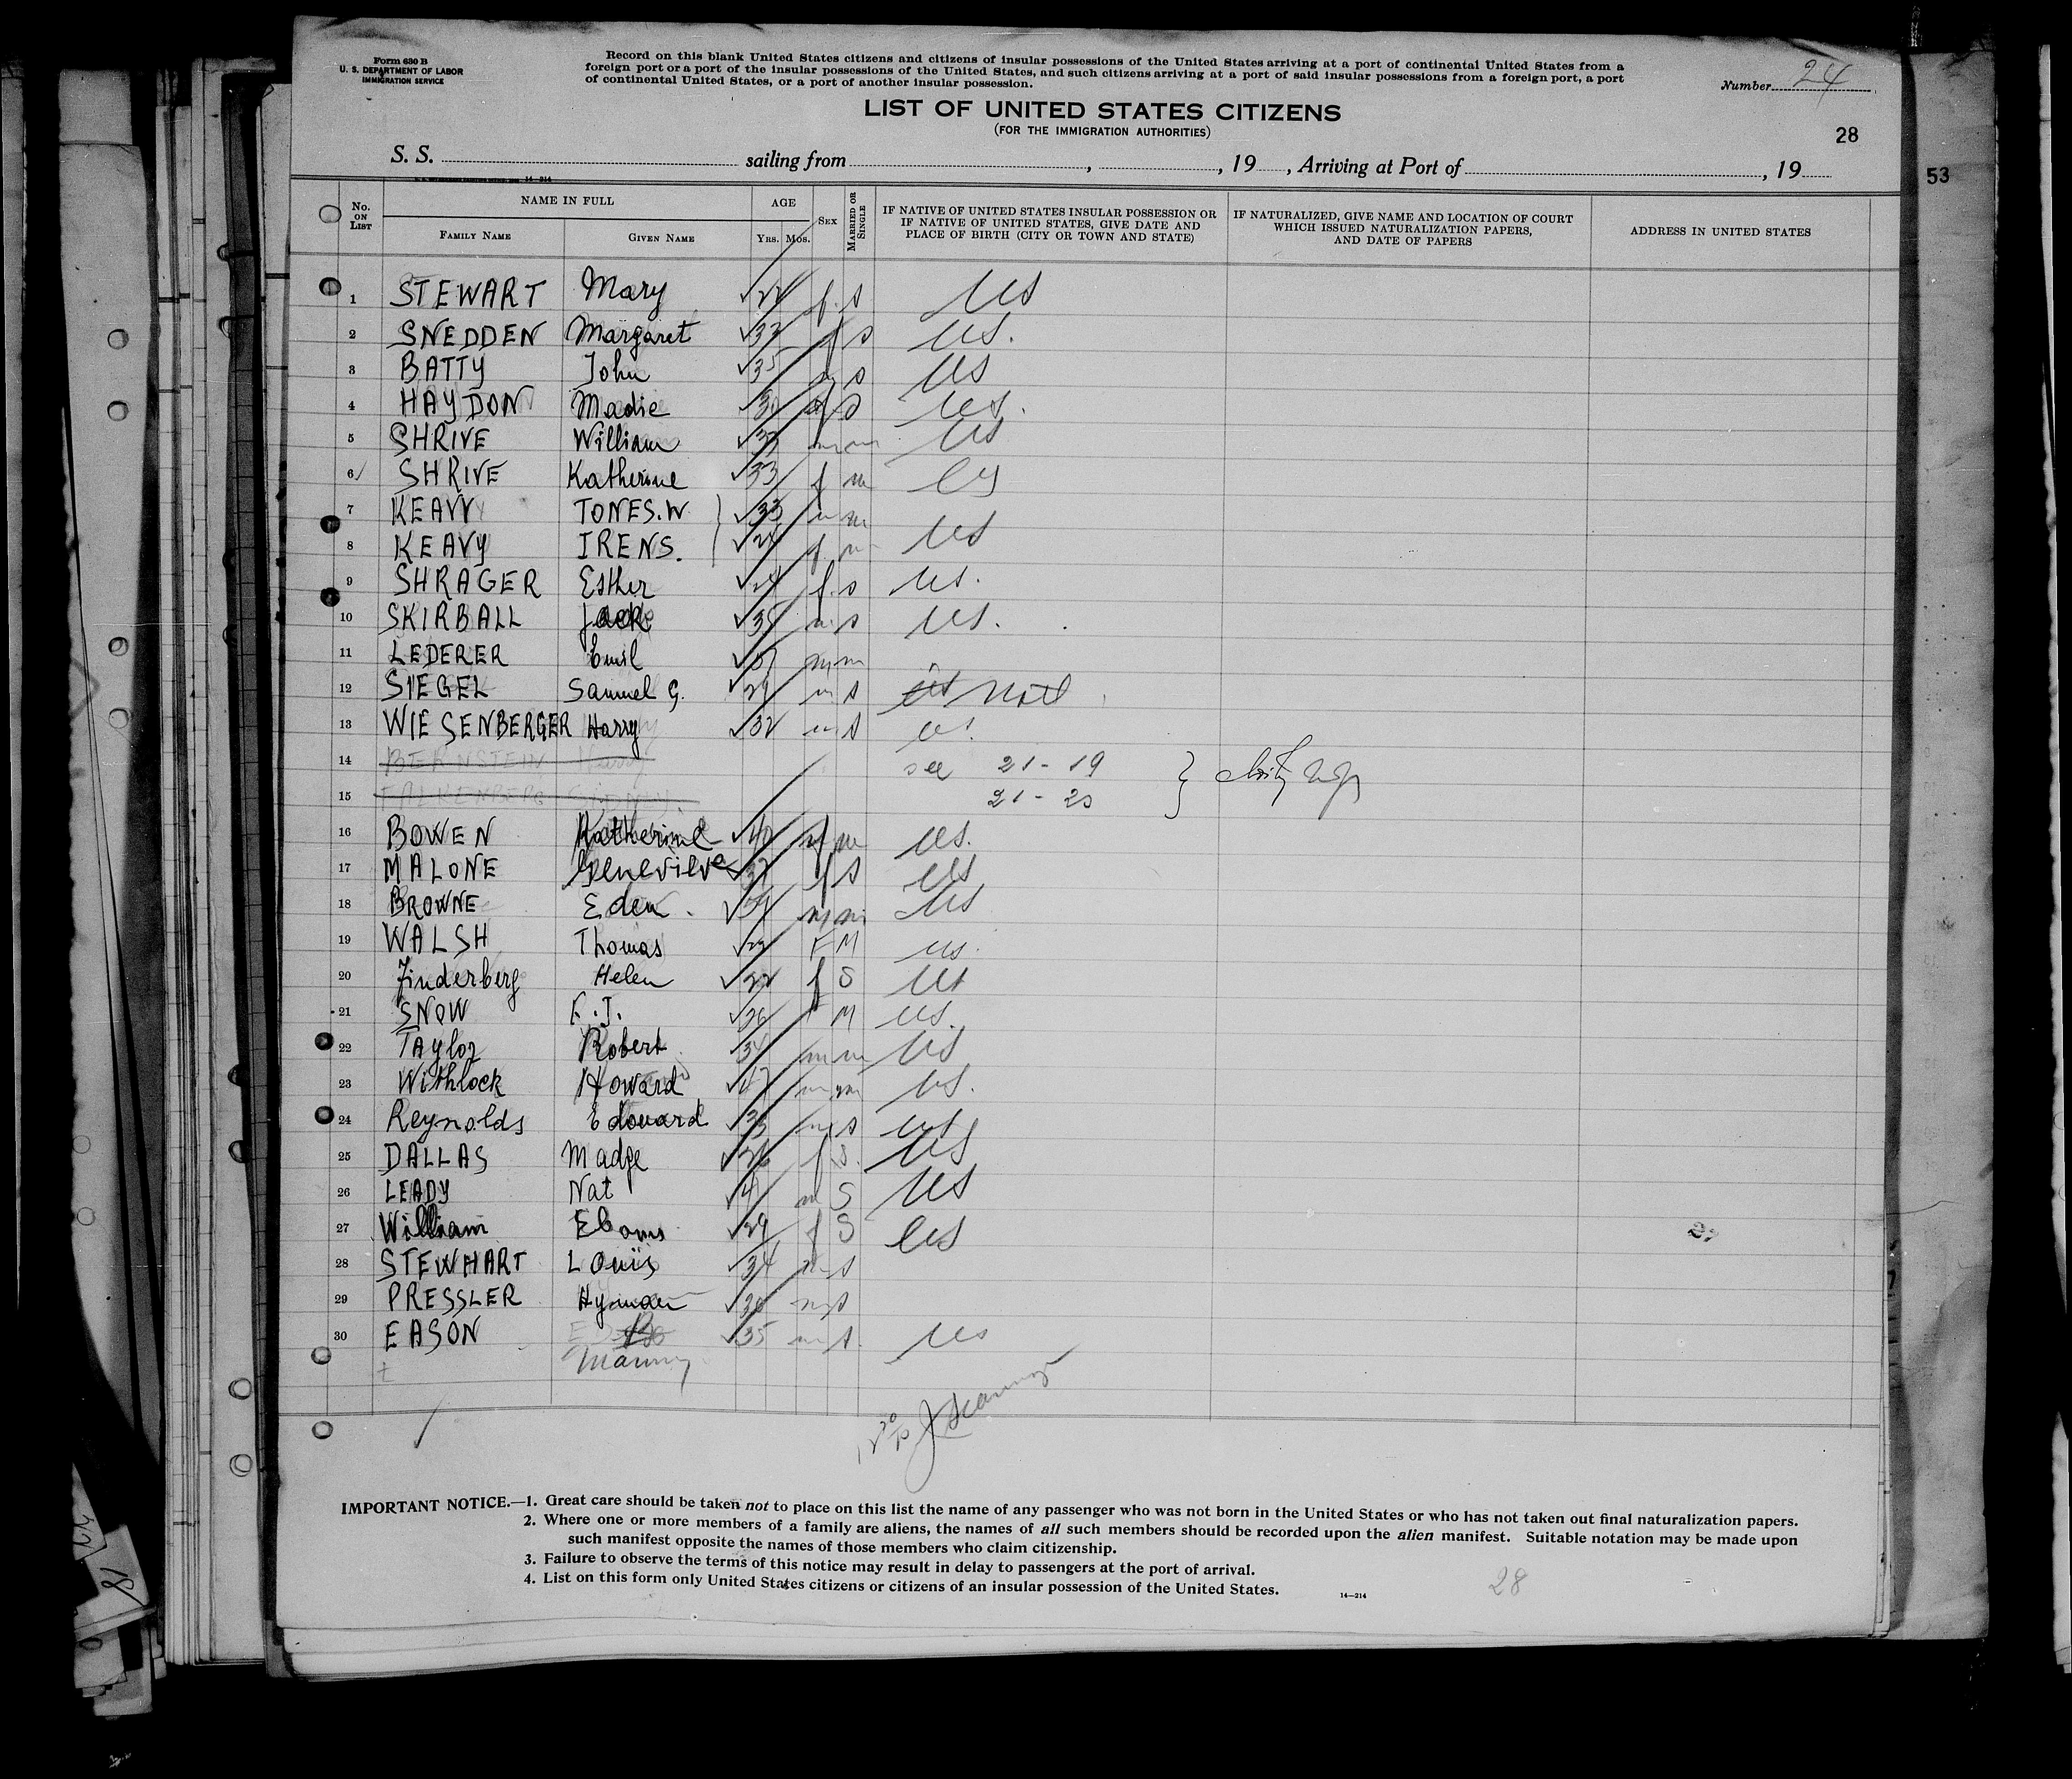 Form 630 B
U. S. DEPARTMENT OF LABOR
IMMIGRATION SERVICE
Record on this blank United States citizens and citizens of insular possessions of the United States arriving at a port of continental United States from a
foreign port or a port of the insular possessions of the United States, and such citizens arriving at a port of said insular possessions from a foreign port, a port
of continental United States, or a port of another insular possession.
Number 24
LIST OF UNITED STATES CITIZENS
(FOR THE IMMIGRATION AUTHORITIES)
28
53
S. S. sailing from , , 19 , Arriving at Port of , 19
14-214
No. ON LIST
NAME IN FULL
FAMILY NAME
GIVEN NAME
AGE
YRS.
MOS.
SEX
MARRIED OR SINGLE
IF NATIVE OF UNITED STATES INSULAR POSSESSION OR
IF NATIVE OF UNITED STATES, GIVE DATE AND
PLACE OF BIRTH (CITY OR TOWN AND STATE)
IF NATURALIZED, GIVE NAME AND LOCATION OF COURT
WHICH ISSUED NATURALIZATION PAPERS,
AND DATE OF PAPERS
ADDRESS IN UNITED STATES
1 STEWART Mary f. s US
2 SNEDDEN Margaret f s US.
3 BATTY John 35 s US
4 HAYDON Madie f s US.
5 SHRIVE William 33 m m US
6 SHRIVE Katherine 33 f m US
7 KEAVY TONES.W 33 m m
8 KEAVY IRENS. f m US
9 SHRAGER Esther f. s US.
10 SKIRBALL Jack m. s US.
11 LEDERER Emil m m
12 SIEGEL Samuel G. m s
13 WIESENBERGER Harry 32 m s
14 BERNSTEIN see 21-19
15 FALKENBERG 21-20
16 BOWEN Katherine 40 f m US.
17 MALONE Genevieve f s US
18 BROWNE Eden. m m US
19 WALSH Thomas F M US.
20 Finderberg Helen f S US
21 SNOW F.J. M US.
22 Taylor Robert m m US
23 Withlock Howard m m US.
24 Reynolds Edouard m s US
25 DALLAS Madge f S. US
26 LEADY Nat m S US
27 William 29 f S US
28 STEWHART Louis 34 m s
29 PRESSLER Hyman m s
30 EASON 35 m s. US
Manny
IMPORTANT NOTICE.—1. Great care should be taken not to place on this list the name of any passenger who was not born in the United States or who has not taken out final naturalization papers.
2. Where one or more members of a family are aliens, the names of all such members should be recorded upon the alien manifest. Suitable notation may be made upon
such manifest opposite the names of those members who claim citizenship.
3. Failure to observe the terms of this notice may result in delay to passengers at the port of arrival.
4. List on this form only United States citizens or citizens of an insular possession of the United States.
14-214
28